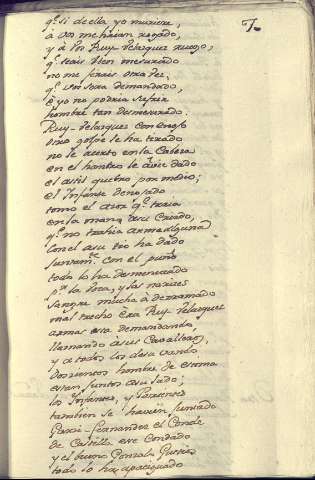 7
q.e si de ella yo muriere,
à vos me haian rogado,
y à vos Ruy Velazquez ruego,
q.e seais bien mesurado
no me ferais otra vez,
q.e será demandado,
è yo no podria sufrir
hombre tan desmesurado.
Ruy-Velazquez con enojo
otro golpe le ha tirado
no le acertò en la Cabeza
en el hombro le avie dado
el astil quebro por medio;
el Infante denodado
tomo el azor q.e traia
en la mano su Criado,
q.e no trahia arma alguna
con el a su tio ha dado
juntam.te con el puño
todo lo ha desmenuzado
p.r la boca, y las narices
sangre mucha à derramado
mal trecho era Ruy Velazquez
armas esta demandando,
llamando à sus Cavalleros,
y a todos los de su vando.
Doscientos hombres de
estan juntos a su lado;
los Infantes, y Parientes
tambien se havien juntado
Garci-Fernandez el Conde
de Castilla ese Condado
y el bueno Gonzalo Gustios
todo lo ha apaciguado